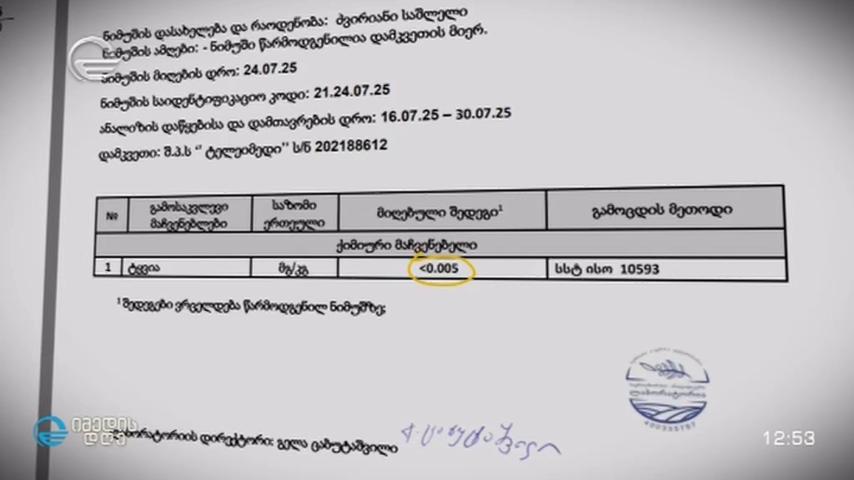 ნიმუშის დასახელება და რაოდენობა: ძვირიანი საშლელი
ნიმუშის აღება: - ნიმუში წარმოდგენილია დამკვეთის მიერ.
ნიმუშის მიღების დრო: 24.07.25
ნიმუშის საიდენტიფიკაციო კოდი: 21.24.07.25
ანალიზის დაწყებისა და დამთავრების დრო: 16.07.25 – 30.07.25
დამკვეთი: შ.პ.ს “ ტელეიმედი” ს/ნ 202188612
№ გამოსაკვლევი მაჩვენებლები საზომი ერთეული მიღებული შედეგი¹ გამოცდის მეთოდი
ქიმიური მაჩვენებელი
1 ტყვია მგ/კგ <0.005 სსტ ისო 10593
¹ შედეგები ვრცელდება წარმოდგენილ ნიმუშზე;
ლაბორატორია
400335787
ლაბორატორიის დირექტორი: გელა ცაბუტაშვილი
იმედის
დღე
12:53